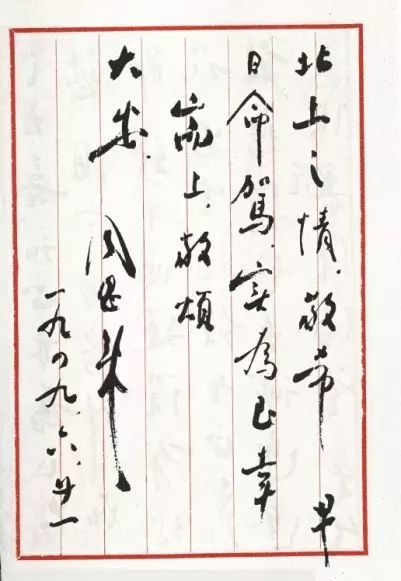 北上之情.敬希 早
日命駕.实為至幸
耑上.敬頌
大安.
周恩来
一九四九.六.廿一